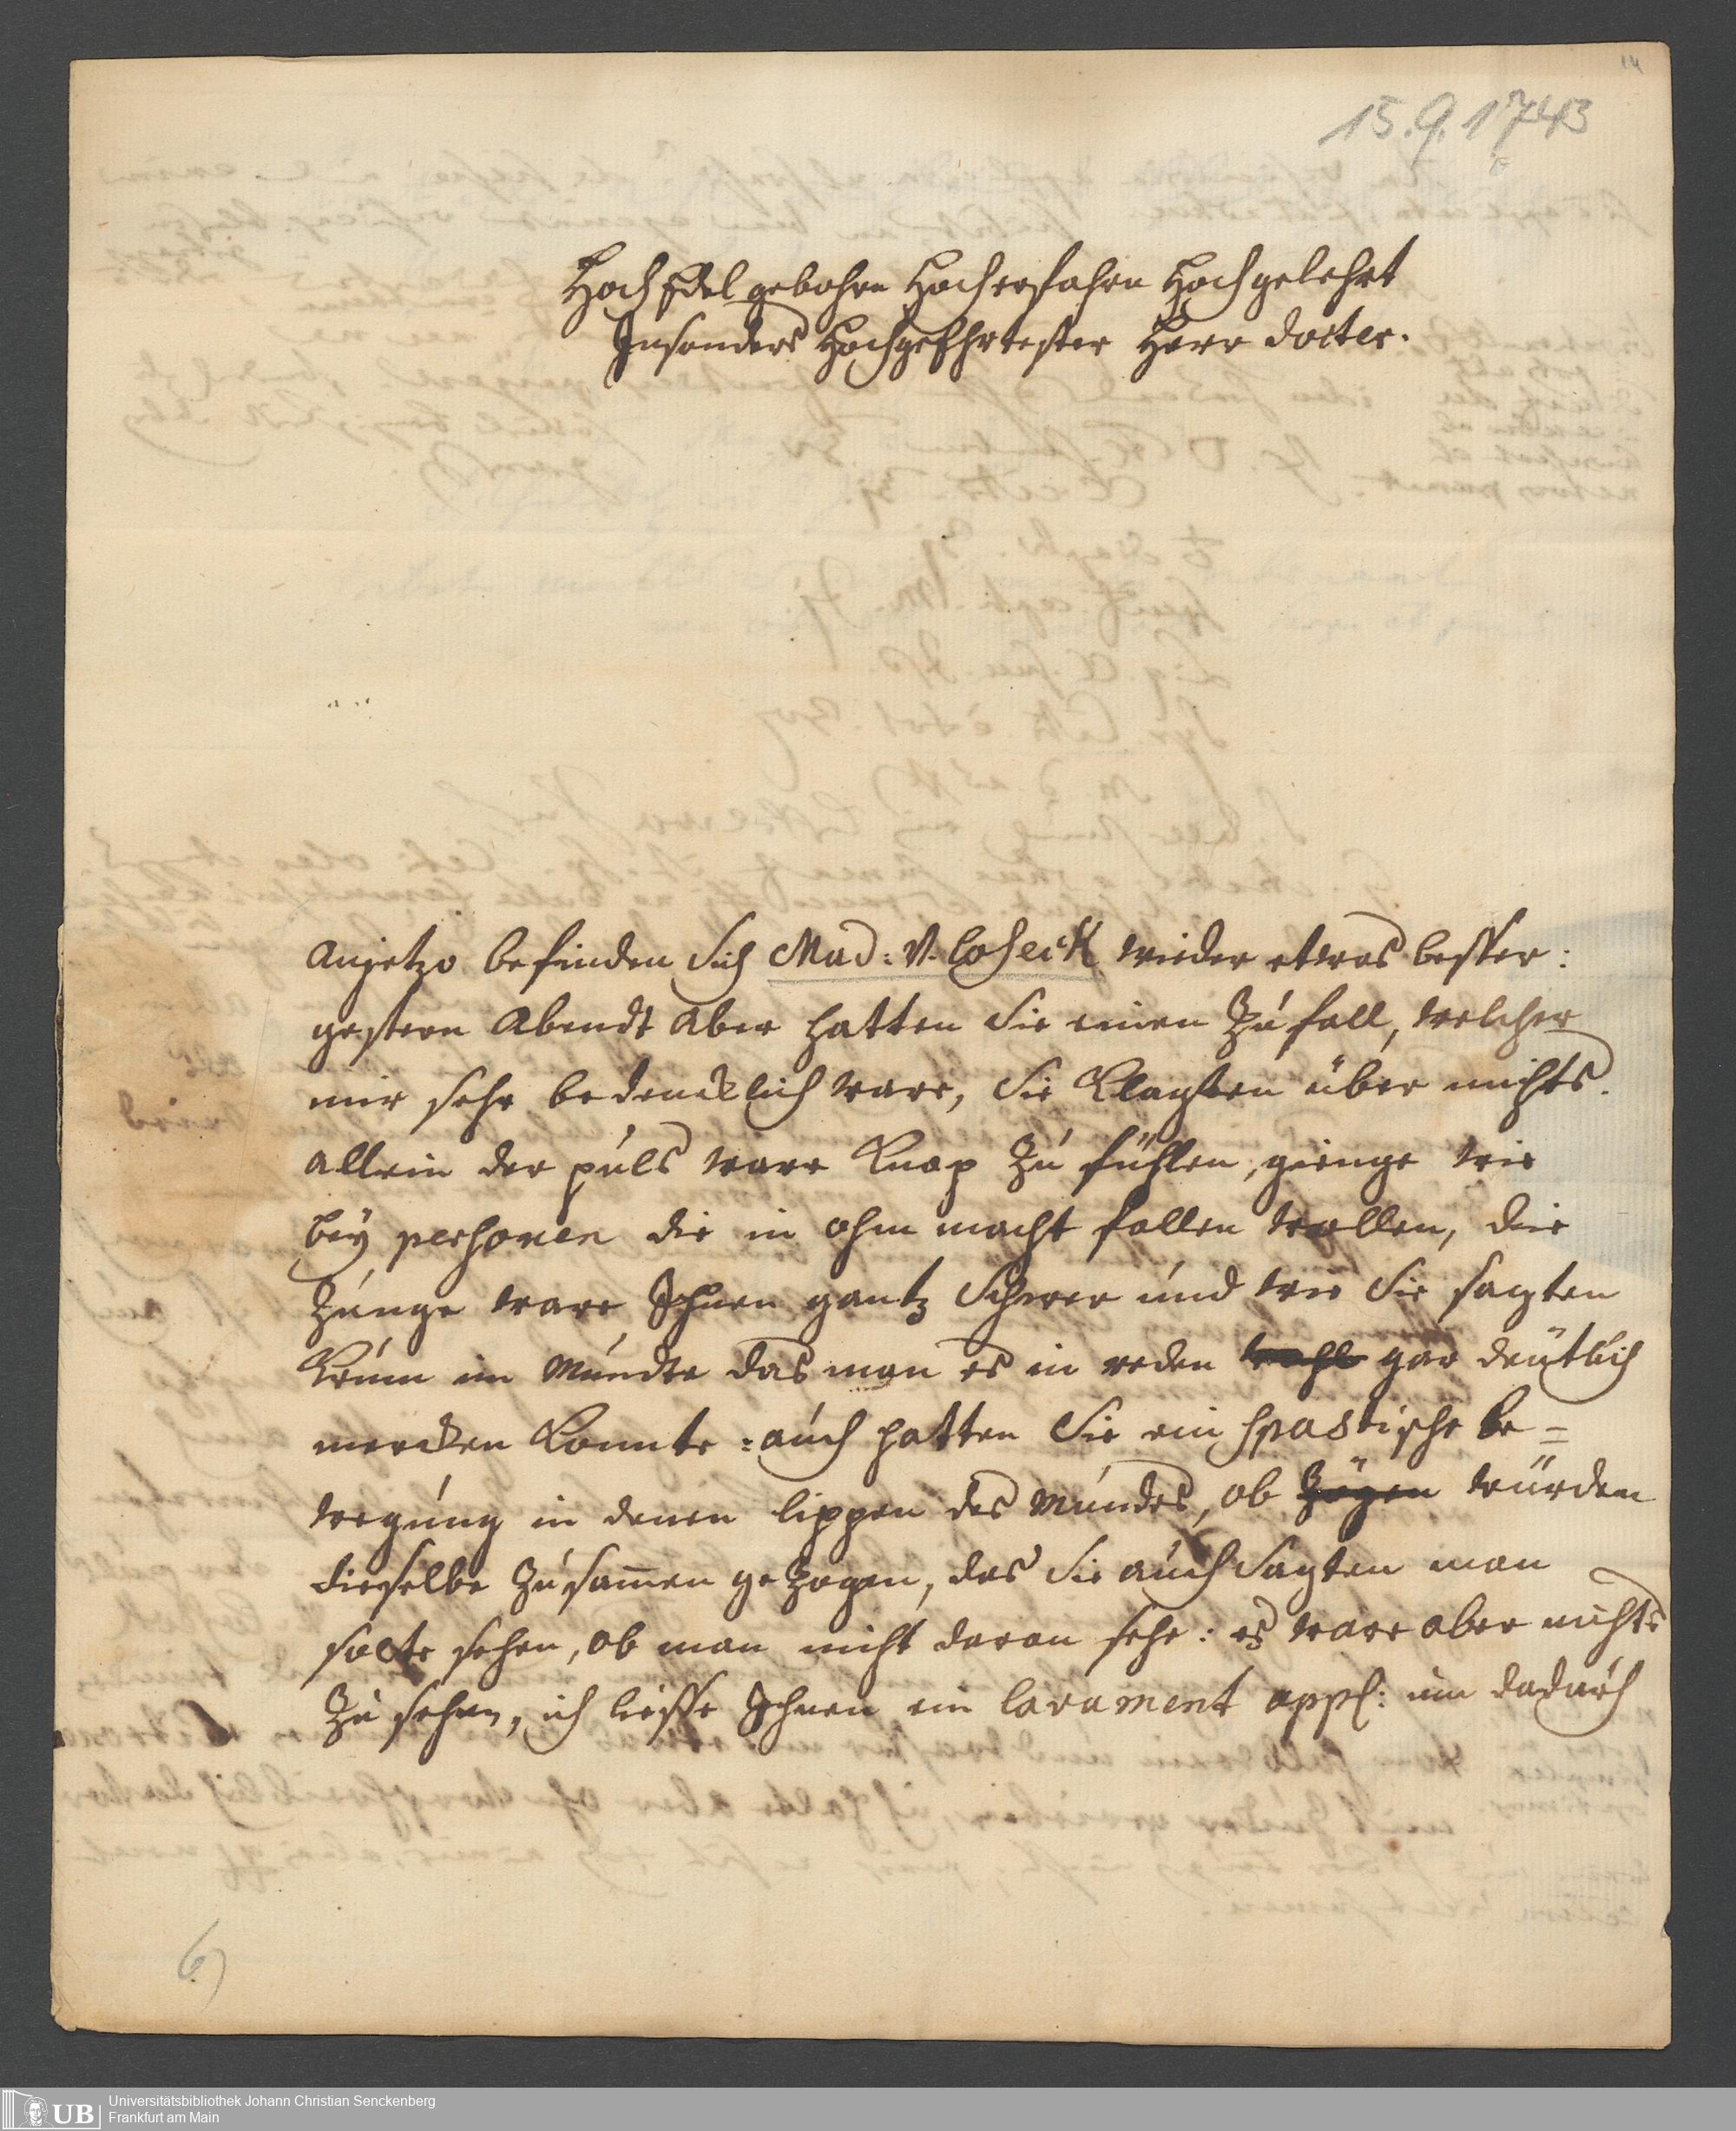 14
15.9.1743
Hoch Edel gebohrn Hocherfahrn Hochgelehrt
Insonders HochgeEhrtester Herr docter.
Anjetzo befinden Sich Mad: v. Loheick wieder etwas besser:
gestern Abendt aber hatten Sie einen Zufall, welcher
mir sehr bedencklich ware, Sie Klagten über nichts.
allein der puls ware Knap zu fühlen, gienge wie
bey perhonen die in ohn macht fallen wollen, die
Zunge ware Ihnen gantz Schwer und wie Sie sagten
Krum im Mundte das man es in reden wohl gar deutlich
mercken Konnte: auch hatten Sie ein spastische be=
wegung in denen lippen des Mundes, ob zögen würden
dieselbe zusamen gezogen, das Sie auch Sagten man
solte sehen, ob man nicht daran sehe: es ware aber nichts
zu sehen, ich liesse Ihnen ein lavament appl: um dadurch
6)
UB
Universitätsbibliothek Johann Christian Senckenberg
Frankfurt am Main